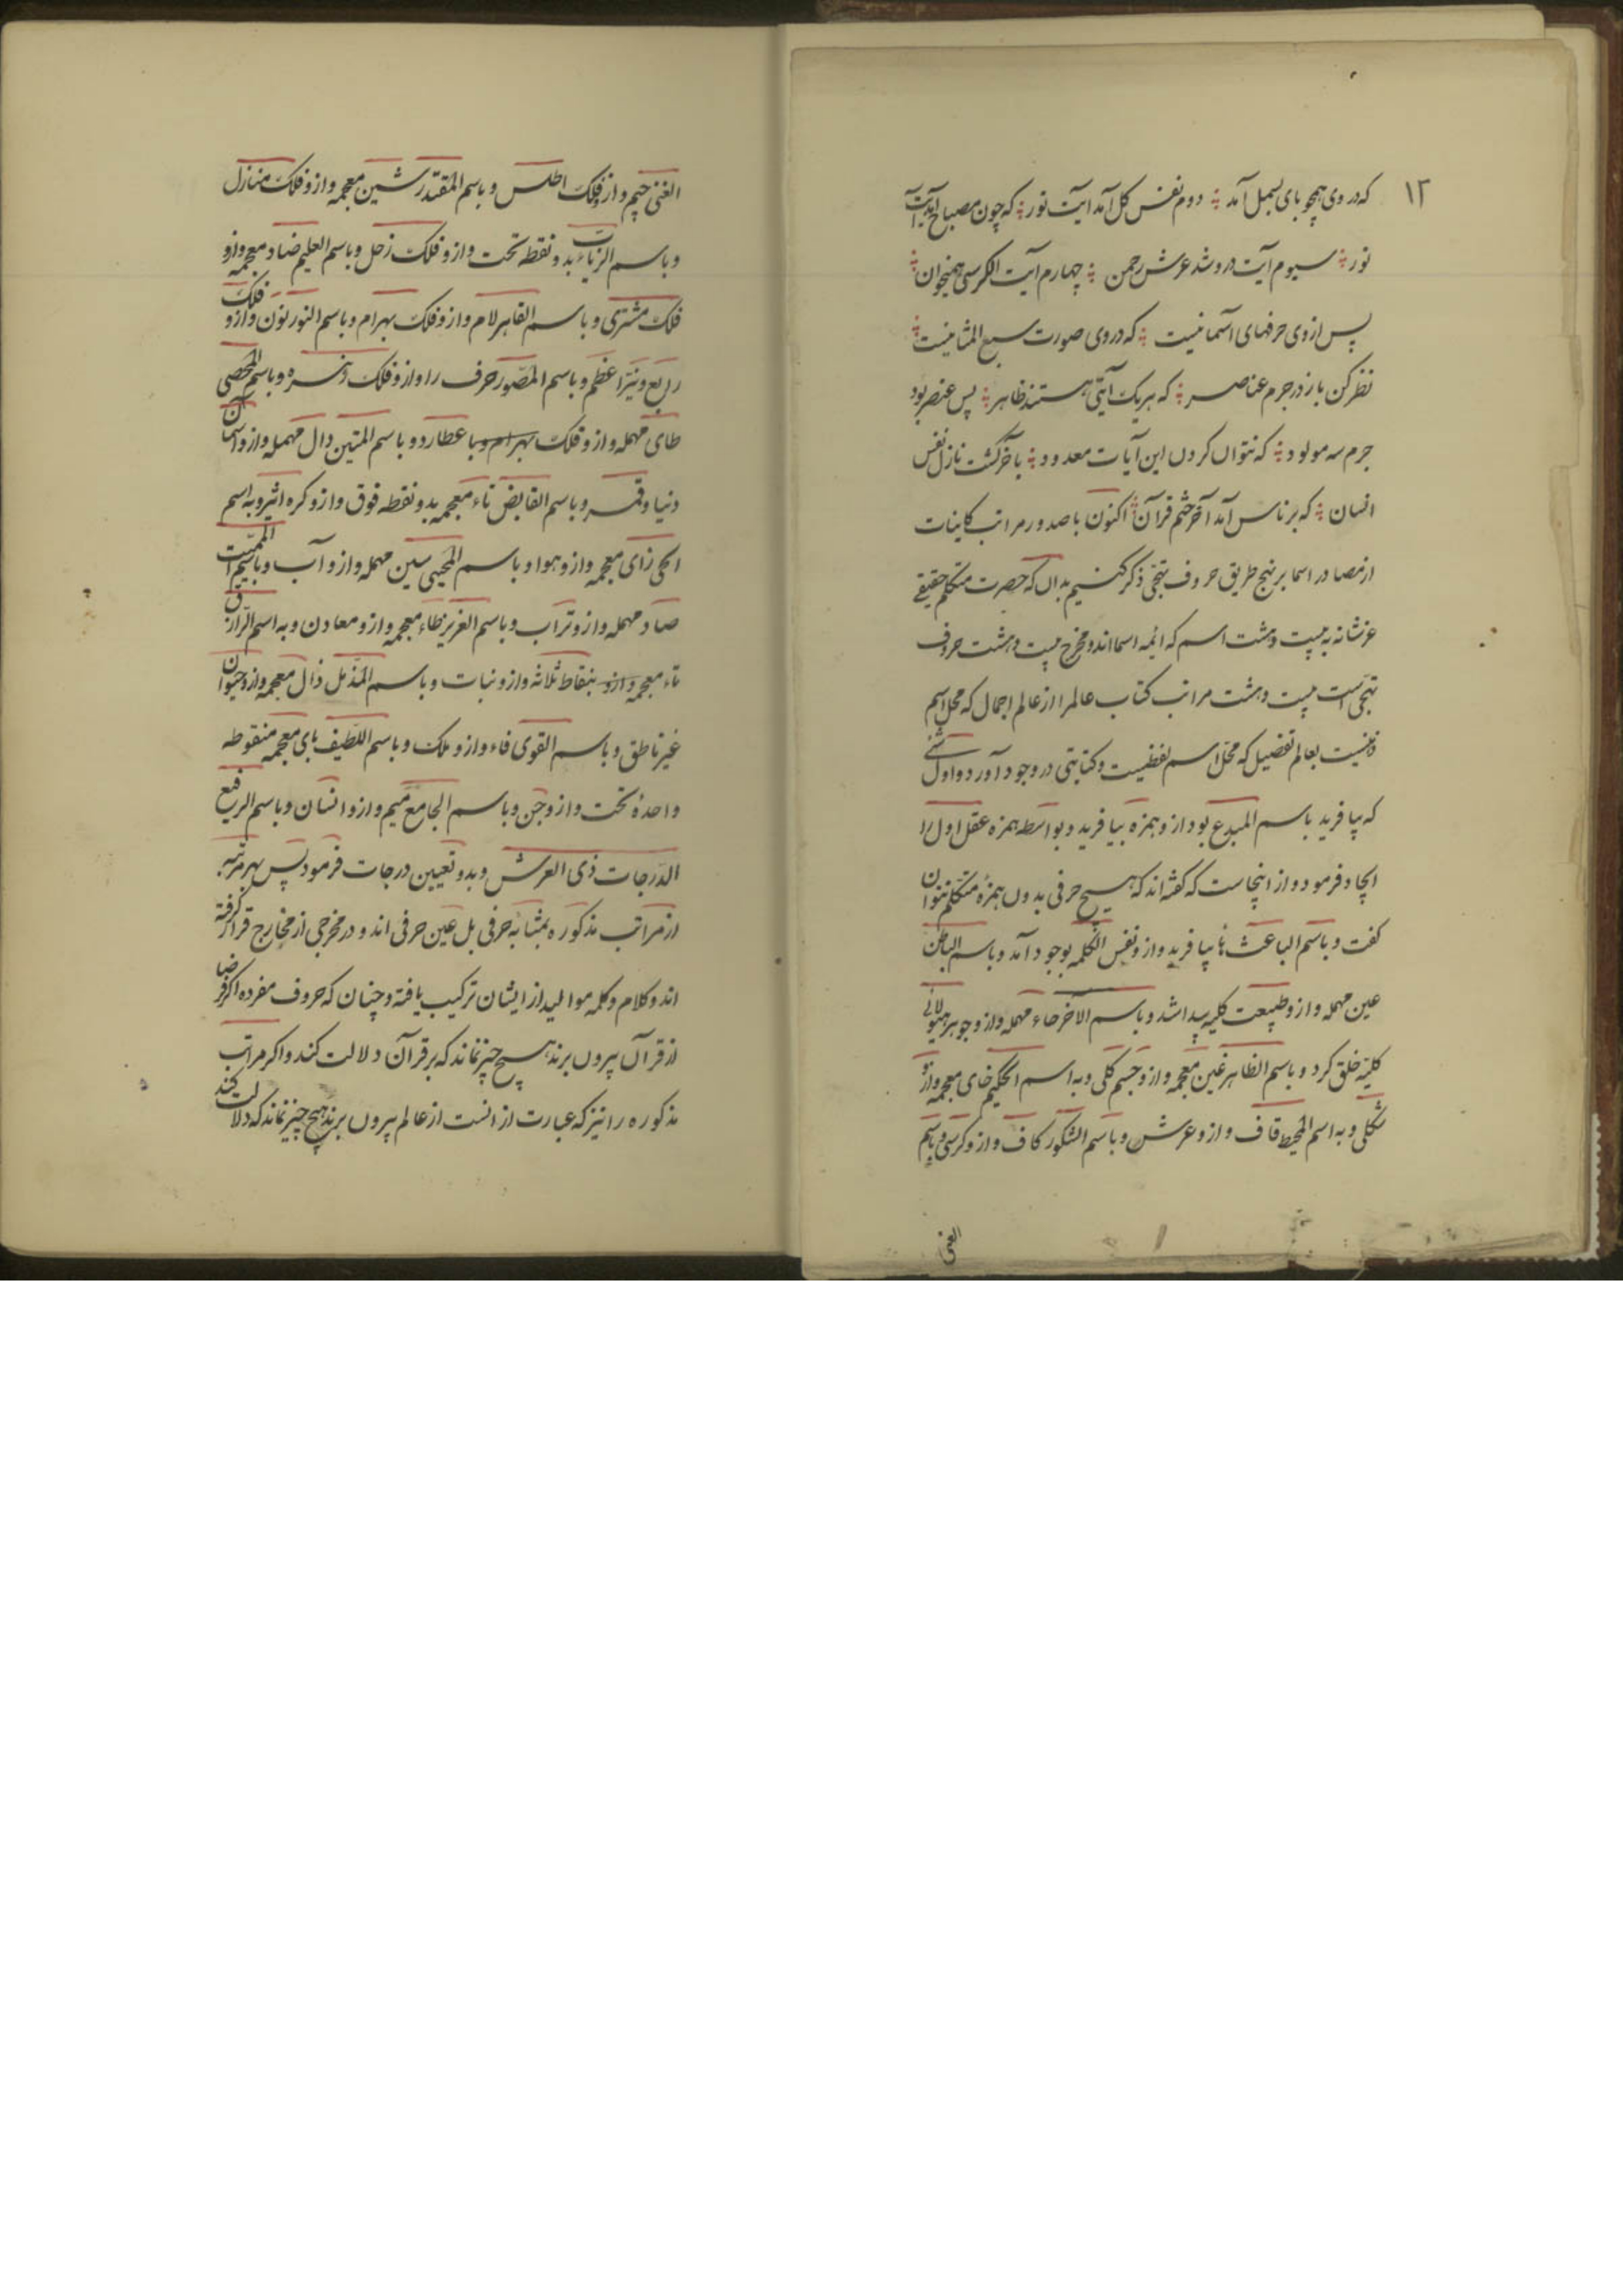 ۱۲
که در وی همچو بای بسمل آمد ؞ دوم نفس کل آمد آیت نور ؞ که چون مصباح آمد آیت
نور ؞ سیوم آیت درو شد عرش رحمن ؞ چهارم آیت الکرسی همیخوان ؞
پس از وی حرفهای آسمانیست ؞ که در وی صورت سبع المثانیست ؞
نظر کن باز در جرم عناصر ؞ که هر یک آیتی هستند ظاهر ؞ پس عنصر بود
جرم سه مولود ؞ که نتوان کردن این آیات معدود ؞ بآخر گشت نازل نفس
انسان ؞ که بر ناس آمد آخر ختم قرآن ؞ اکنون باصدور مراتب کاینات
از مصادر اسما بر نهج طریق حروف تهجی ذکر کنیم بدان که حضرت متکلم حقیقی
عزشانه به بیست و هشت اسم که ائمه اسمااند و مخرج بیست و هشت حروف
تهجی است بیست و هشت مراتب کتاب عالم را از عالم اجمال که محل اسم
بعالم تفصیل که محل اسم لفظیست و کتابتی در وجود آورد و اول شئی
که بیافرید باسم المبدع بود ازو همزه بیافرید و بواسطه همزه عقل اول را
ایجاد فرمود و از اینجاست که گفته‌اند که هیچ حرفی بدون همزه متکلم نتوان
گفت و باسم الباعث ها بیافرید و ازو نفس الکلیه بوجود آمد و باسم الباطن
عین مهمله و ازو طبیعت کلیه پیدا شد و باسم الآخر حاء مهمله و ازو جوهر هیولائی
کلیه خلق کرد و باسم الظاهر غین معجمه و ازو جسم کلی و به اسم الحکیم خای معجمه و ازو
شکلی و به اسم المحیط قاف و ازو عرش و باسم الشکور کاف و ازو کرسی و باسم
الغنی
الغنی جیم و ازو فلک اطلس و باسم المقتدر شین معجمه و ازو فلک منازل
و باسم الرب یاء بدو نقطه تحت و ازو فلک زحل و باسم العلیم ضاد معجمه و ازو
فلک مشتری و باسم القاهر لام و ازو فلک بهرام و باسم النور نون و ازو فلک
رابع و نیر اعظم و باسم المصور حرف را و ازو فلک زهره و باسم المحصی
طای مهمله و ازو فلک بهرام و با عطارد و باسم المتین دال مهمله و ازو آسمان
دنیا و قمر و باسم القابض تاء معجمه بدو نقطه فوق و ازو کره اثیر و به اسم
الحی زای معجمه و ازو هوا و باسم المحیی سین مهمله و ازو آب و باسم الممیت
صاد مهمله و ازو تراب و باسم العزیز ظاء معجمه و ازو معادن و به اسم الرزاق
ثاء معجمه وازو بنقاط ثلاثه و ازو نبات و باسم المذل ذال معجمه و ازو حیوان
غیر ناطق و باسم القوی فاء و ازو ملک و باسم اللطیف بای معجمه منقوطه
واحدهٔ تحت و ازو جن و باسم الجامع میم و ازو انسان و باسم الرفیع
الدرجات ذی العرش و بدو تعیین درجات فرمود پس هر مرتبه
از مراتب مذکوره بمثابه حرفی بل عین حرفی‌اند و در مخرجی از مخارج قرار گرفته
اند و کلام و کلمه موالید از ایشان ترکیب یافته و چنان که حروف مفرده اگر فرضا
از قرآن بیرون برند هیچ چیز نماند که بر قرآن دلالت کند و اگر مراتب
مذکوره را نیز که عبارت از انست از عالم بیرون برند هیچ چیز نماند که دلالت کند